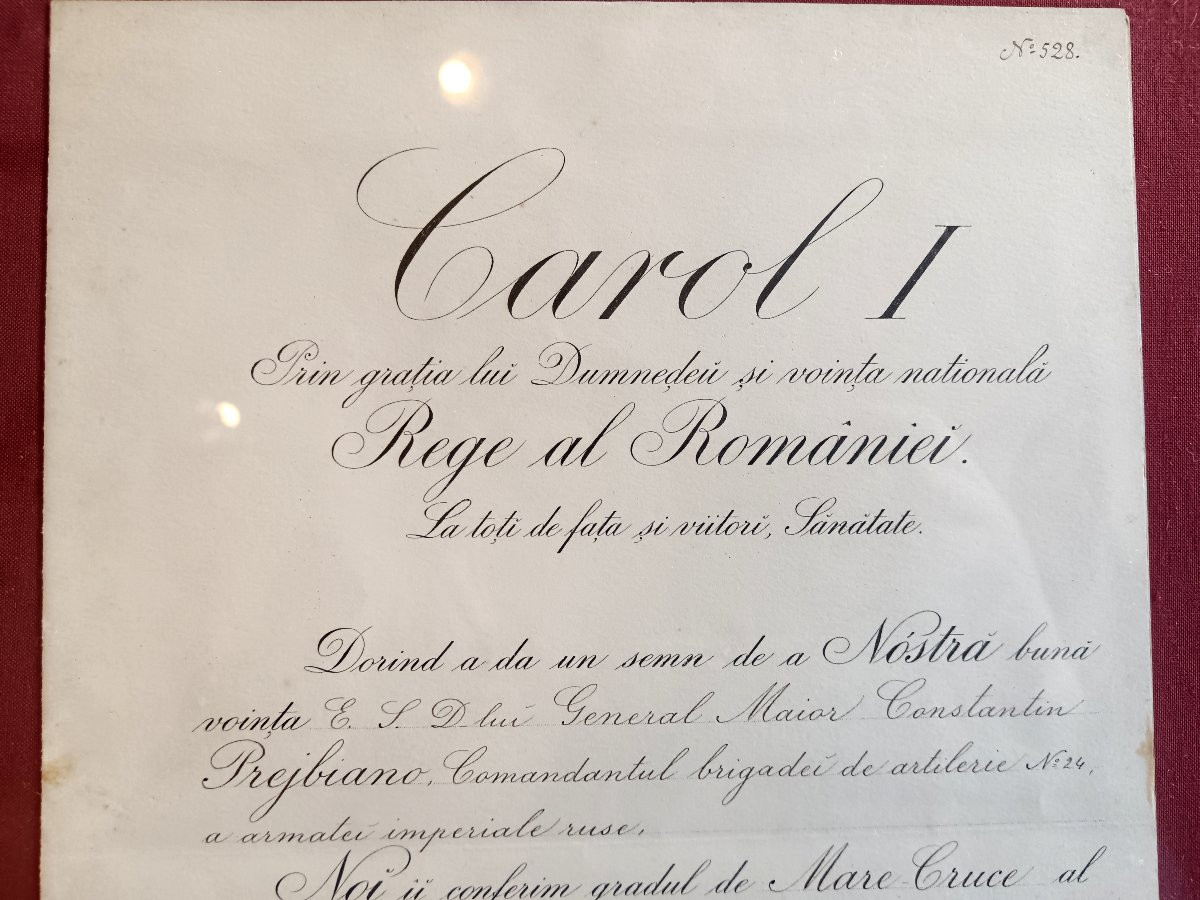 Nº 528.
Carol I
Prin grația lui Dumnedeŭ și voința natională
Rege al Românieĭ.
La toți de fața și viitorĭ, Sănătate.
Dorind a da un semn de a Nóstră bună
voința E. S. D luĭ General Maior Constantin
Prejbiano, Comandantul brigadeĭ de artilerie Nº 24,
a armateĭ imperiale ruse,
Noĭ iĭ conferim gradul de Mare-Cruce al